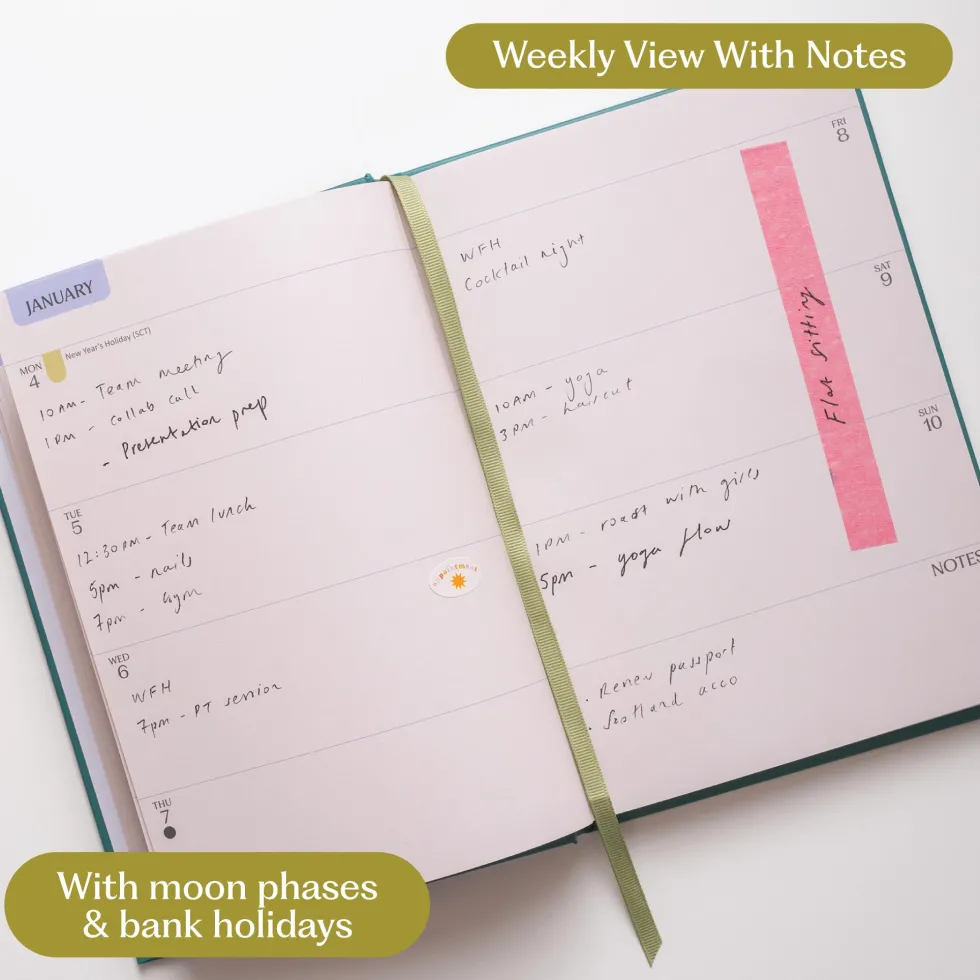 Weekly View With Notes
JANUARY
MON
4
New Year's Holiday (SCT)
10AM - Team meeting
1PM - collab call
- Presentation prep
TUE
5
12:30PM - Team lunch
5pm - nails
7pm - Gym
appointment
WED
6
WFH
7pm - PT session
THU
7
FRI
8
WFH
Cocktail night
SAT
9
10AM - yoga
3PM - haircut
Flat sitting
SUN
10
1PM - roast with girls
5pm - yoga flow
NOTES
. Renew passport
. Scotland acco
With moon phases
& bank holidays